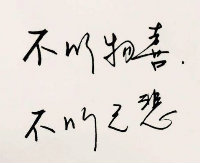 不以物喜.
不以己悲